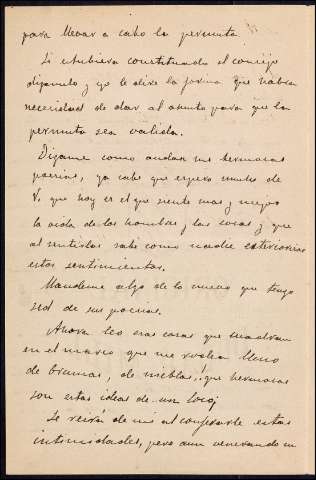 para llevar a cabo la permuta.
Si estubiera constituido el consejo
digamelo y yo le dire la forma que habia
necesidad de dar al asunto para que la
permuta sea valida.
Digame como andan sus hermosas
poesias, ya sabe que espero mucho de
V. que hoy es el que siente mas y mejor
la vida de los hombres y las cosas y que
al sentirlas sabe como nadie exteriorizar
estos sentimientos.
Mandeme algo de lo nuevo que tengo
sed de sus poesias.
Ahora leo esas cosas que encuadran
en el marco que me rodea lleno
de brumas, de nieblas ¡que hermosas
son estas ideas de un loco¡
Se reirá de mi al confesarle estas
intimidades, pero aun venerando su